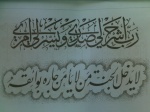 رب اشرح لی صدری و یسر لی امری
لا یدخل الجنة من لا یامن جاره بوائقه